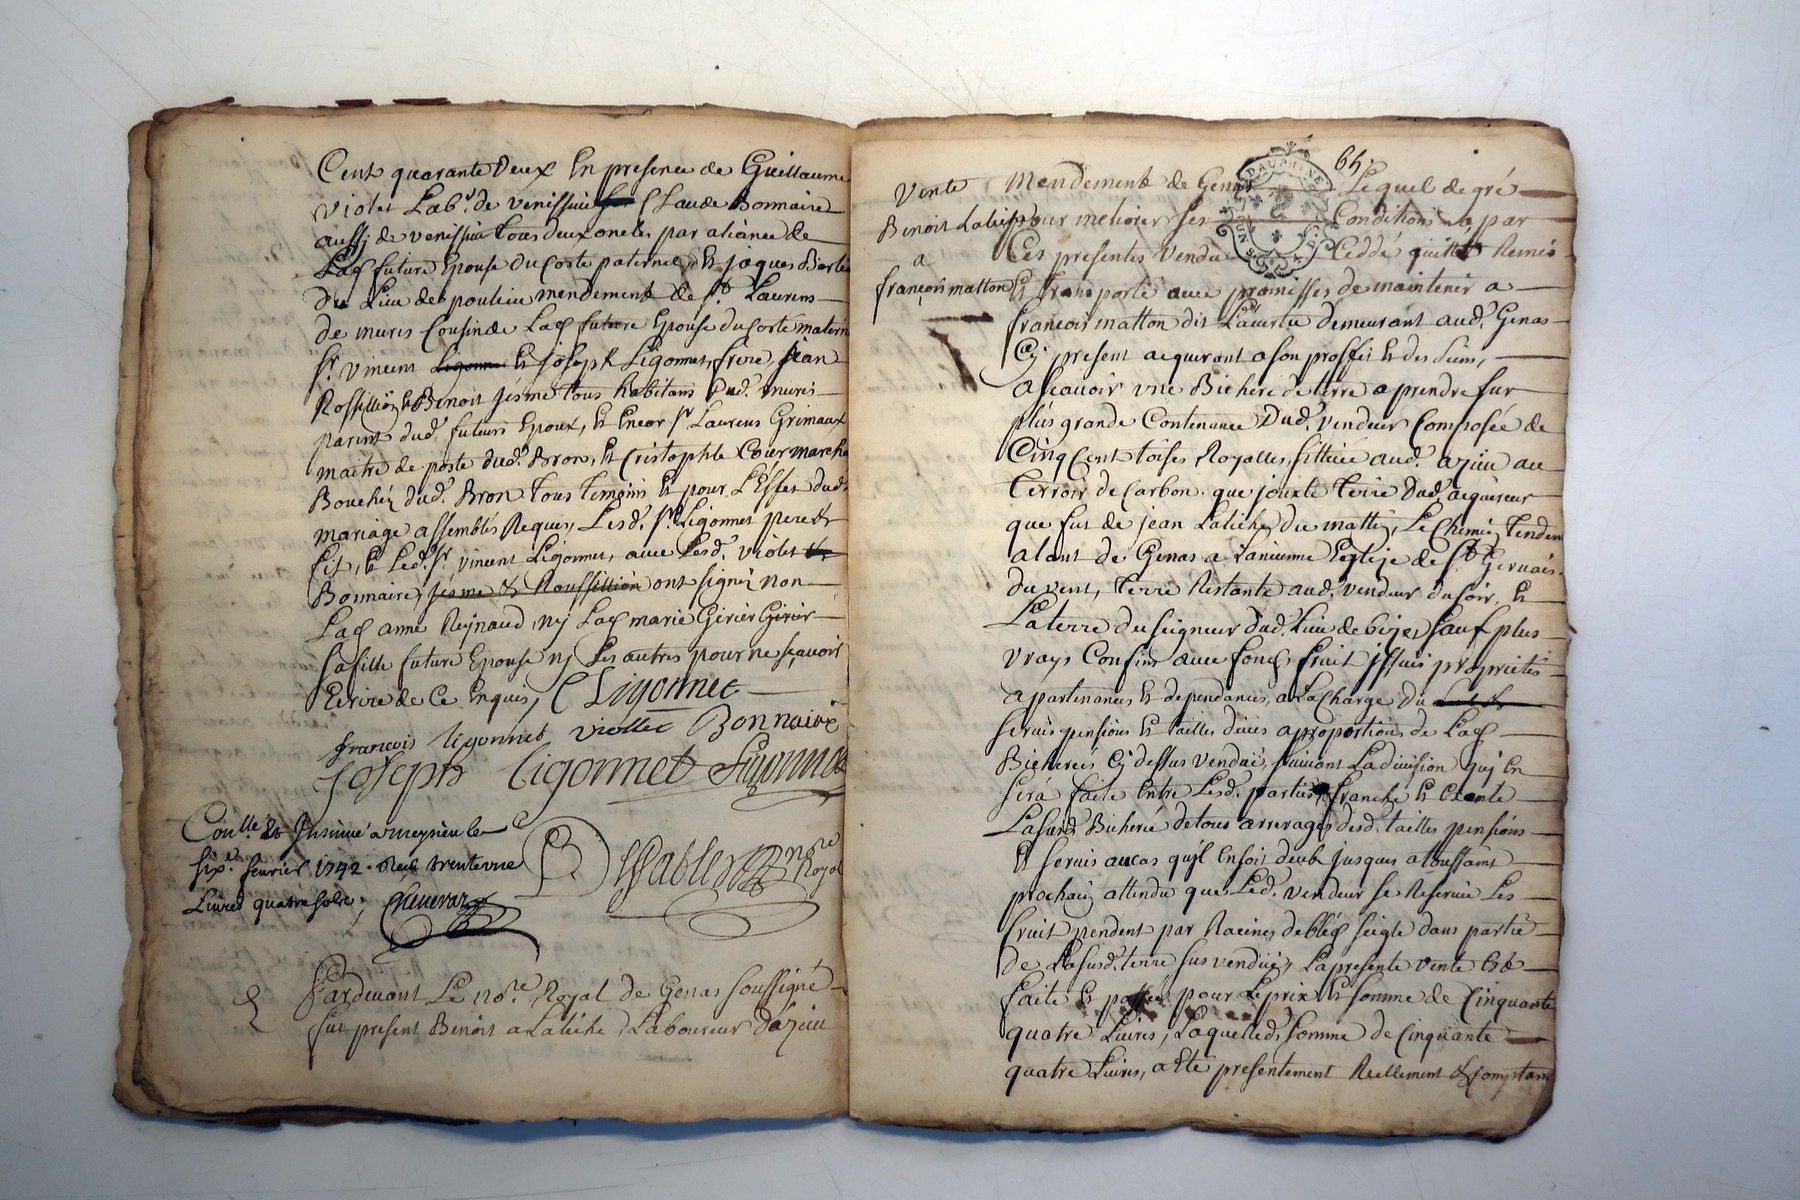 Cent quarante Deux En presence de Guillaume
violet Lab.r de venissiu Claude Bonnaire
aussj de venissiu tous deux oncles par aliance de
Lad future Epouse du Costé paternel, Et jaques
Du Lieu de poulieu mendement de S.t Laurens
de mures Cousin de Lad future Epouse du Costé matern
S.r vincent Ligonnet Et joseph Ligonnet, frere, jean
Rossillion Et Benoit jesme tous habitans Dud. mures
parent dud. futeur Epoux, Et Encor S.r Laurens Grimaux
maitre de poste dud. Bron, Et Cristophle Coier marcha
Boucher dud. Bron tous temoins Et pour L'Effet dud.
mariage assemblés Requis, Lesd. S.rs Ligonnet pere Et
fis, Et Led. S.r vincent Ligonnet, avec Lesd. violet
Bonnaire, jesme & Roussillion ont signé non
Lad anne Reynaud, nj Lad marie Girier Girier
sa fille future Epouse nj Les autres pour ne sçavoir
Ecrire de Ce Enquis, C Ligonnet
françois ligonnet viollet Bonnaire
joseph ligonnet Ligonnet
Con.lle Et Insinué a meyzieu le
six.e fevrier 1742. Reçu trente une
Livres quatre sols.
n.re Royal
Pardevant Le no.re Royal de Genas soussigné
fut present Benoit a Latiche Laboureur d'azieu
65.
DAUPHINE
Vente
Benoit Latiche
a
françois matton
Mendement de Genas Lequel de gré
pour meliorer ses Conditions a par
Ces presentes Vendu Ceddé quitté Remis
Et transporté avec promisses de maintenir a
françois matton dit Lavertu demeurant aud. Genas
Cj present aquerant a son proffit Et des siens,
a sçavoir une Bicherée de terre a prendre sur
plus grande Contenance Dud. vendeur Composée de
Cinq Cent toises Royalles, sittuée aud. azieu au
terroir de Carbon. que jouxte terre Dud. aquereur
que fut de jean Latiche du mattin, Le Chemin tendent
alant de Genas a Lancienne Eglize de S.t Gervais
du vent, terre Restante aud. vendeur du soir, Et
La terre du seigneur Dud. Lieu de bize, sauf plus
vrays Confins avec fond, fruit jssues proprietés
apartenances Et dependances, a La Charge du
servis pensions Et tailles deües a proportions de Lad
Bicherée Cj dessus vendüe, suivant La division quj En
sera faite Entre Lesd. parties franche Et Exente
Lasusd. Bicherée de tous arrerages desd. tailles pensions
Et servis au cas qu'jl En soit deub jusques a toussaint
prochain attendu que Led. vendeur se Reserve Les
fruit pendent par Racines de bled seigle dans partie
de Lasusd. terre sus vendüe, La presente vente Est
faite Et passée pour Le prix Et somme de Cinquante
quatre Livres, Laquelled. somme de Cinquante
quatre Livres, a Eté presentement Reellement & Comptant